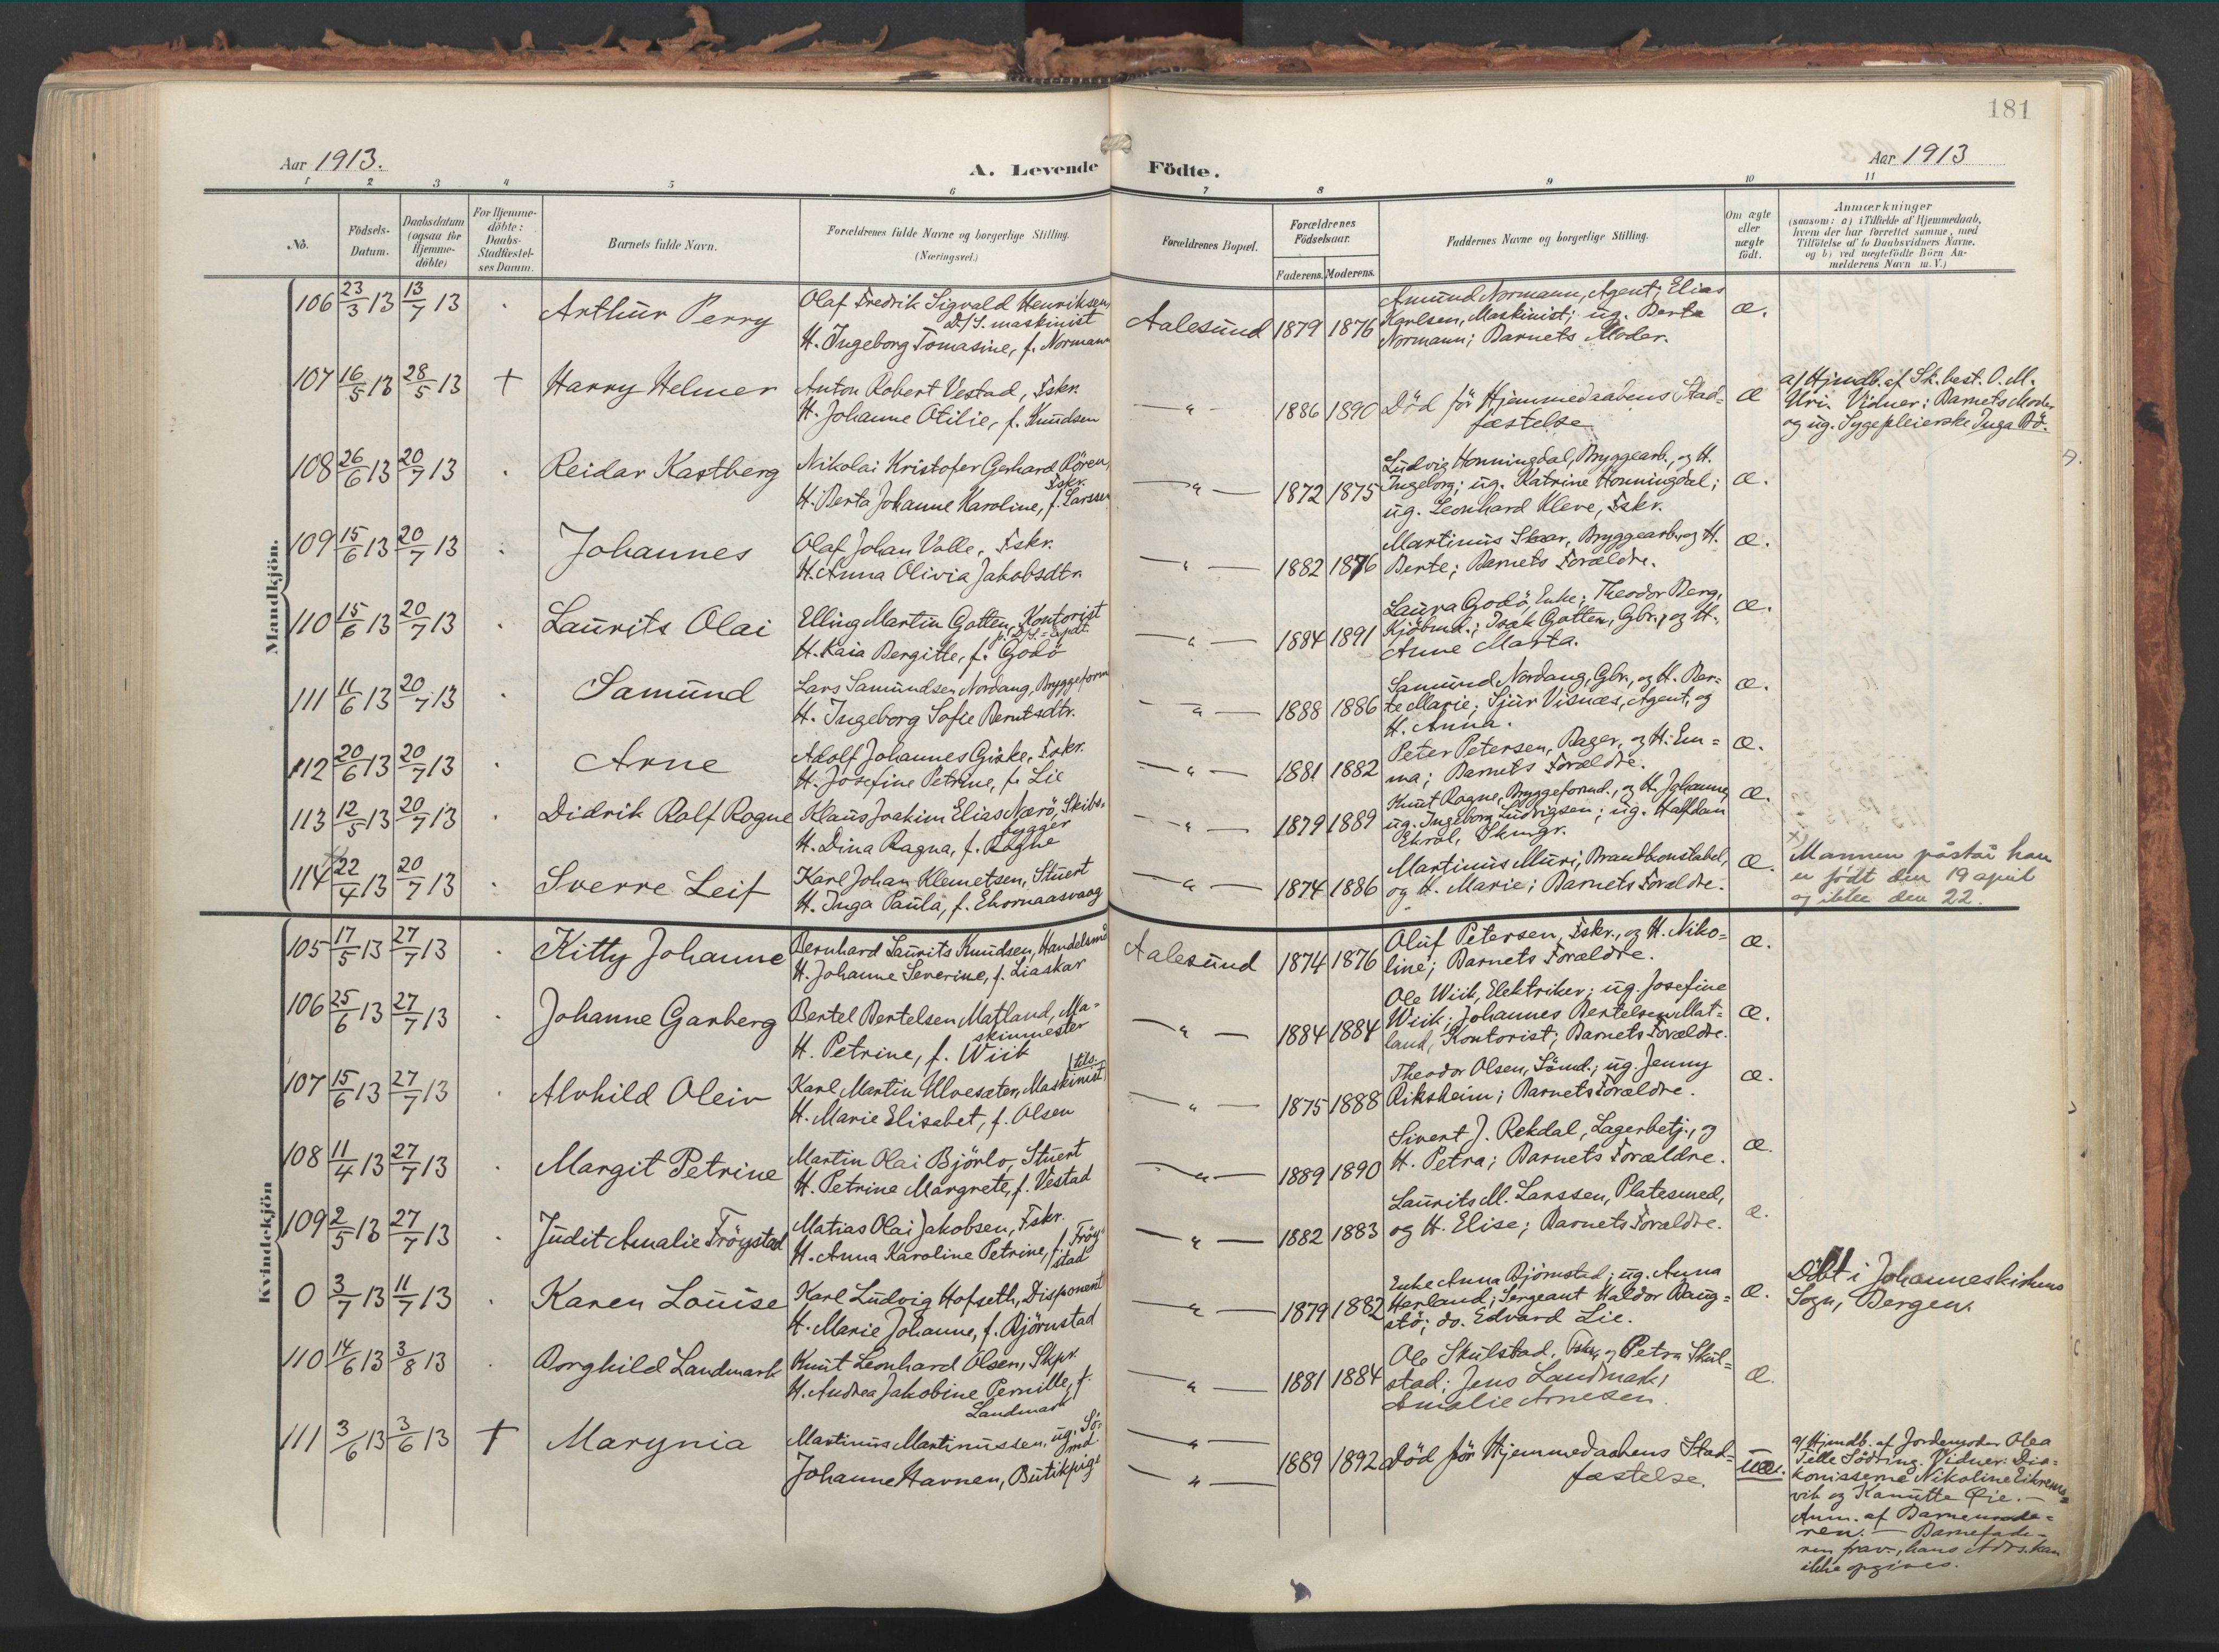 181
Aar 1913.
A. Levende Födte.
Aar 1913
1 2 3 4 5 6 7 8 9 10 11
No.
Födsels-Datum.
Daabsdatum (ogsaa for Hjemme-döbte)
For Hjemme-döbte: Daabs-Stadfæstel-ses Datum.
Barnets fulde Navn.
Forældrenes fulde Navne og borgerlige Stilling.
(Næringsvei.)
Forældrenes Bopæl.
Forældrenes Födselsaar.
Faderens. Moderens.
Faddernes Navne og borgerlige Stilling.
Om ægte eller uægte födt.
Anmærkninger
(saasom: a) i Tilfælde af Hjemmedaab,
hvem der har forrettet samme, med
Tilföielse af to Daabsvidners Navne.
og b) ved uægtefödte Börn An-
melderens Navn m. V.)
Mandkjön.
106 23/3 13 13/7 13 Arthur Perry
Olaf Fredrik Sigvald Henriksen,
D/S. maskinist
H. Ingeborg Tomasine, f. Normann
Aalesund 1879 1876
Amund Normann, Agent; Elias
Karlsen, Maskinist; ug. Berta
Normann; Barnets Moder.
æ.
107 16/5 13 28/5 13 + Harry Helmer
Anton Robert Vestad, Fskr.
H. Johanne Otilie, f. Knudsen
— " — 1886 1890
Död för Hjemmedaabens Stad=
fæstelse
æ
a/ Hjmdb. af Sk.best. O. M.
Uri. Vidner: Barnets Moder
og ug. Sygepleierske Inga Bö.
108 26/6 13 20/7 13 Reidar Kastberg
Nikolai Kristofer Gerhard Rören,
Fskr.
H. Berta Johanne Karoline, f. Larssen
— " — 1872 1875
Ludvig Honningdal, Bryggearb., og H.
Ingeborg; ug. Katrine Honningdal;
ug. Leonhard Kleve, Fskr.
æ.
109 15/6 13 20/7 13 Johannes
Olaf Johan Valle, Fskr.
H. Anna Olivia Jakobsdtr.
— " — 1882 1876
Martinus Skaar, Bryggearb., og H.
Berte; Barnets Forældre.
æ.
110 15/6 13 20/7 13 Laurits Olai
Elling Martin Gatten, Kontorist
H. Kaia Bergitte, f. Godö
— " — 1884 1891
Laura Godö, Enke; Theodor Berg,
Kjöbmd.; Isak Gatten, Gbr., og H.
Anne Marta.
æ.
111 11/6 13 20/7 13 Samund
Lars Samundsen Nordang, Bryggeform
H. Ingeborg Sofie Berntsdtr.
— " — 1888 1886
Samund Nordang, Gbr., og H. Ber=
te Marie; Sjur Visnæs, Agent, og
H. Anna.
æ.
112 20/6 13 20/7 13 Arne
Adolf Johannes Giske, Fskr.
H. Josefine Petrine, f. Lie
— " — 1881 1882
Peter Petersen, Bager, og H. Em=
ma; Barnets Forældre.
æ.
113 12/5 13 20/7 13 Didrik Rolf Rogne
Klaus Joakim Elias Nærö, Skibs-
bygger
H. Dina Ragna, f. Rogne
— " — 1879 1889
Knut Rogne, Bryggeformd., og H. Johanne;
ug. Ingeborg Ludvigsen; ug. Halfdan
æ.
114 22/4 13 20/7 13 Sverre Leif
Karl Johan Klemetsen, Stuert
H. Inga Paula, f. Ekornaasvaag
— " — 1874 1886
Martinus Muri, Brandkonstabel,
og H. Marie; Barnets Forældre.
æ.
x) Mannen påstår han
er födt den 19 april
og ikke den 22.
Kvindekjön
105 17/5 13 27/7 13 Kitty Johanne
Bernhard Laurits Knudsen, Handelsmd
H. Johanne Severine, f. Liaskar
Aalesund 1874 1876
Oluf Petersen, Fskr., og H. Niko=
line; Barnets Forældre.
æ.
106 25/6 13 27/7 13 Johanne Garberg
Bertel Bertelsen Matland, Ma=
skinmester
H. Petrine, f. Wiik
— " — 1884 1884
Ole Wiik, Elektriker; ug. Josefine
Wiik; Johannes Bertelsen Mat=
land, Kontorist; Barnets Forældre.
æ.
107 15/6 13 27/7 13 Alvhild Oleiv
Karl Martin Ulvesæter, Maskinist
H. Marie Elisabet, f. Olsen
— " — 1875 1888
Theodor Olsen, Sömd.; ug. Jenny
Riksheim; Barnets Forældre.
æ.
108 11/4 13 27/7 13 Margit Petrine
Martin Olai Björlo, Stuert
H. Petrine Margrete, f. Vestad
— " — 1889 1890
Sivert J. Rekdal, Lagerbetj., og
H. Petra; Barnets Forældre.
æ.
109 2/5 13 27/7 13 Judit Amalie Fröystad
Matias Olai Jakobsen, Fskr.
H. Anna Karoline Petrine, f. Fröy-
stad
— " — 1882 1883
Laurits M. Larssen, Platesmed,
og H. Elise; Barnets Forældre.
æ.
0 3/7 13 11/7 13 Karen Louise
Karl Ludvig Hofseth, Disponent
H. Marie Johanne, f. Björnstad
— " — 1879 1882
Enke Anna Björnstad; ug. Anna
Herland; Sergeant Haldor Baug=
stö; do. Edvard Lie.
æ.
Döbt i Johanneskirkens
Sogn, Bergen.
110 14/6 13 3/8 13 Borghild Landmark
Knut Leonhard Olsen, Skpr.
H. Andrea Jakobine Pernille, f.
Landmark
— " — 1881 1884
Ole Skulstad, Fskr, og Petra Skul=
stad; Jens Landmark;
Amalie Arnesen.
æ.
111 3/6 13 3/6 13 + Marynia
Martinus Martinussen, ug. Sö-
md.
Johanne Havnen, Butikpige
— " —
— " — 1889 1892
Död för Hjemmedaabens Stad=
fæstelse.
uæ.
a/ Hjmdb. af Jordemoder Olea
Telle Södring. Vidner: Dia=
konisserne Nikoline Eikrems=
vik og Kanutte Øie. —
Anm. af Barnemode=
ren. — Barnefade=
ren frav., hans Adrs. kan
ikke opgives.